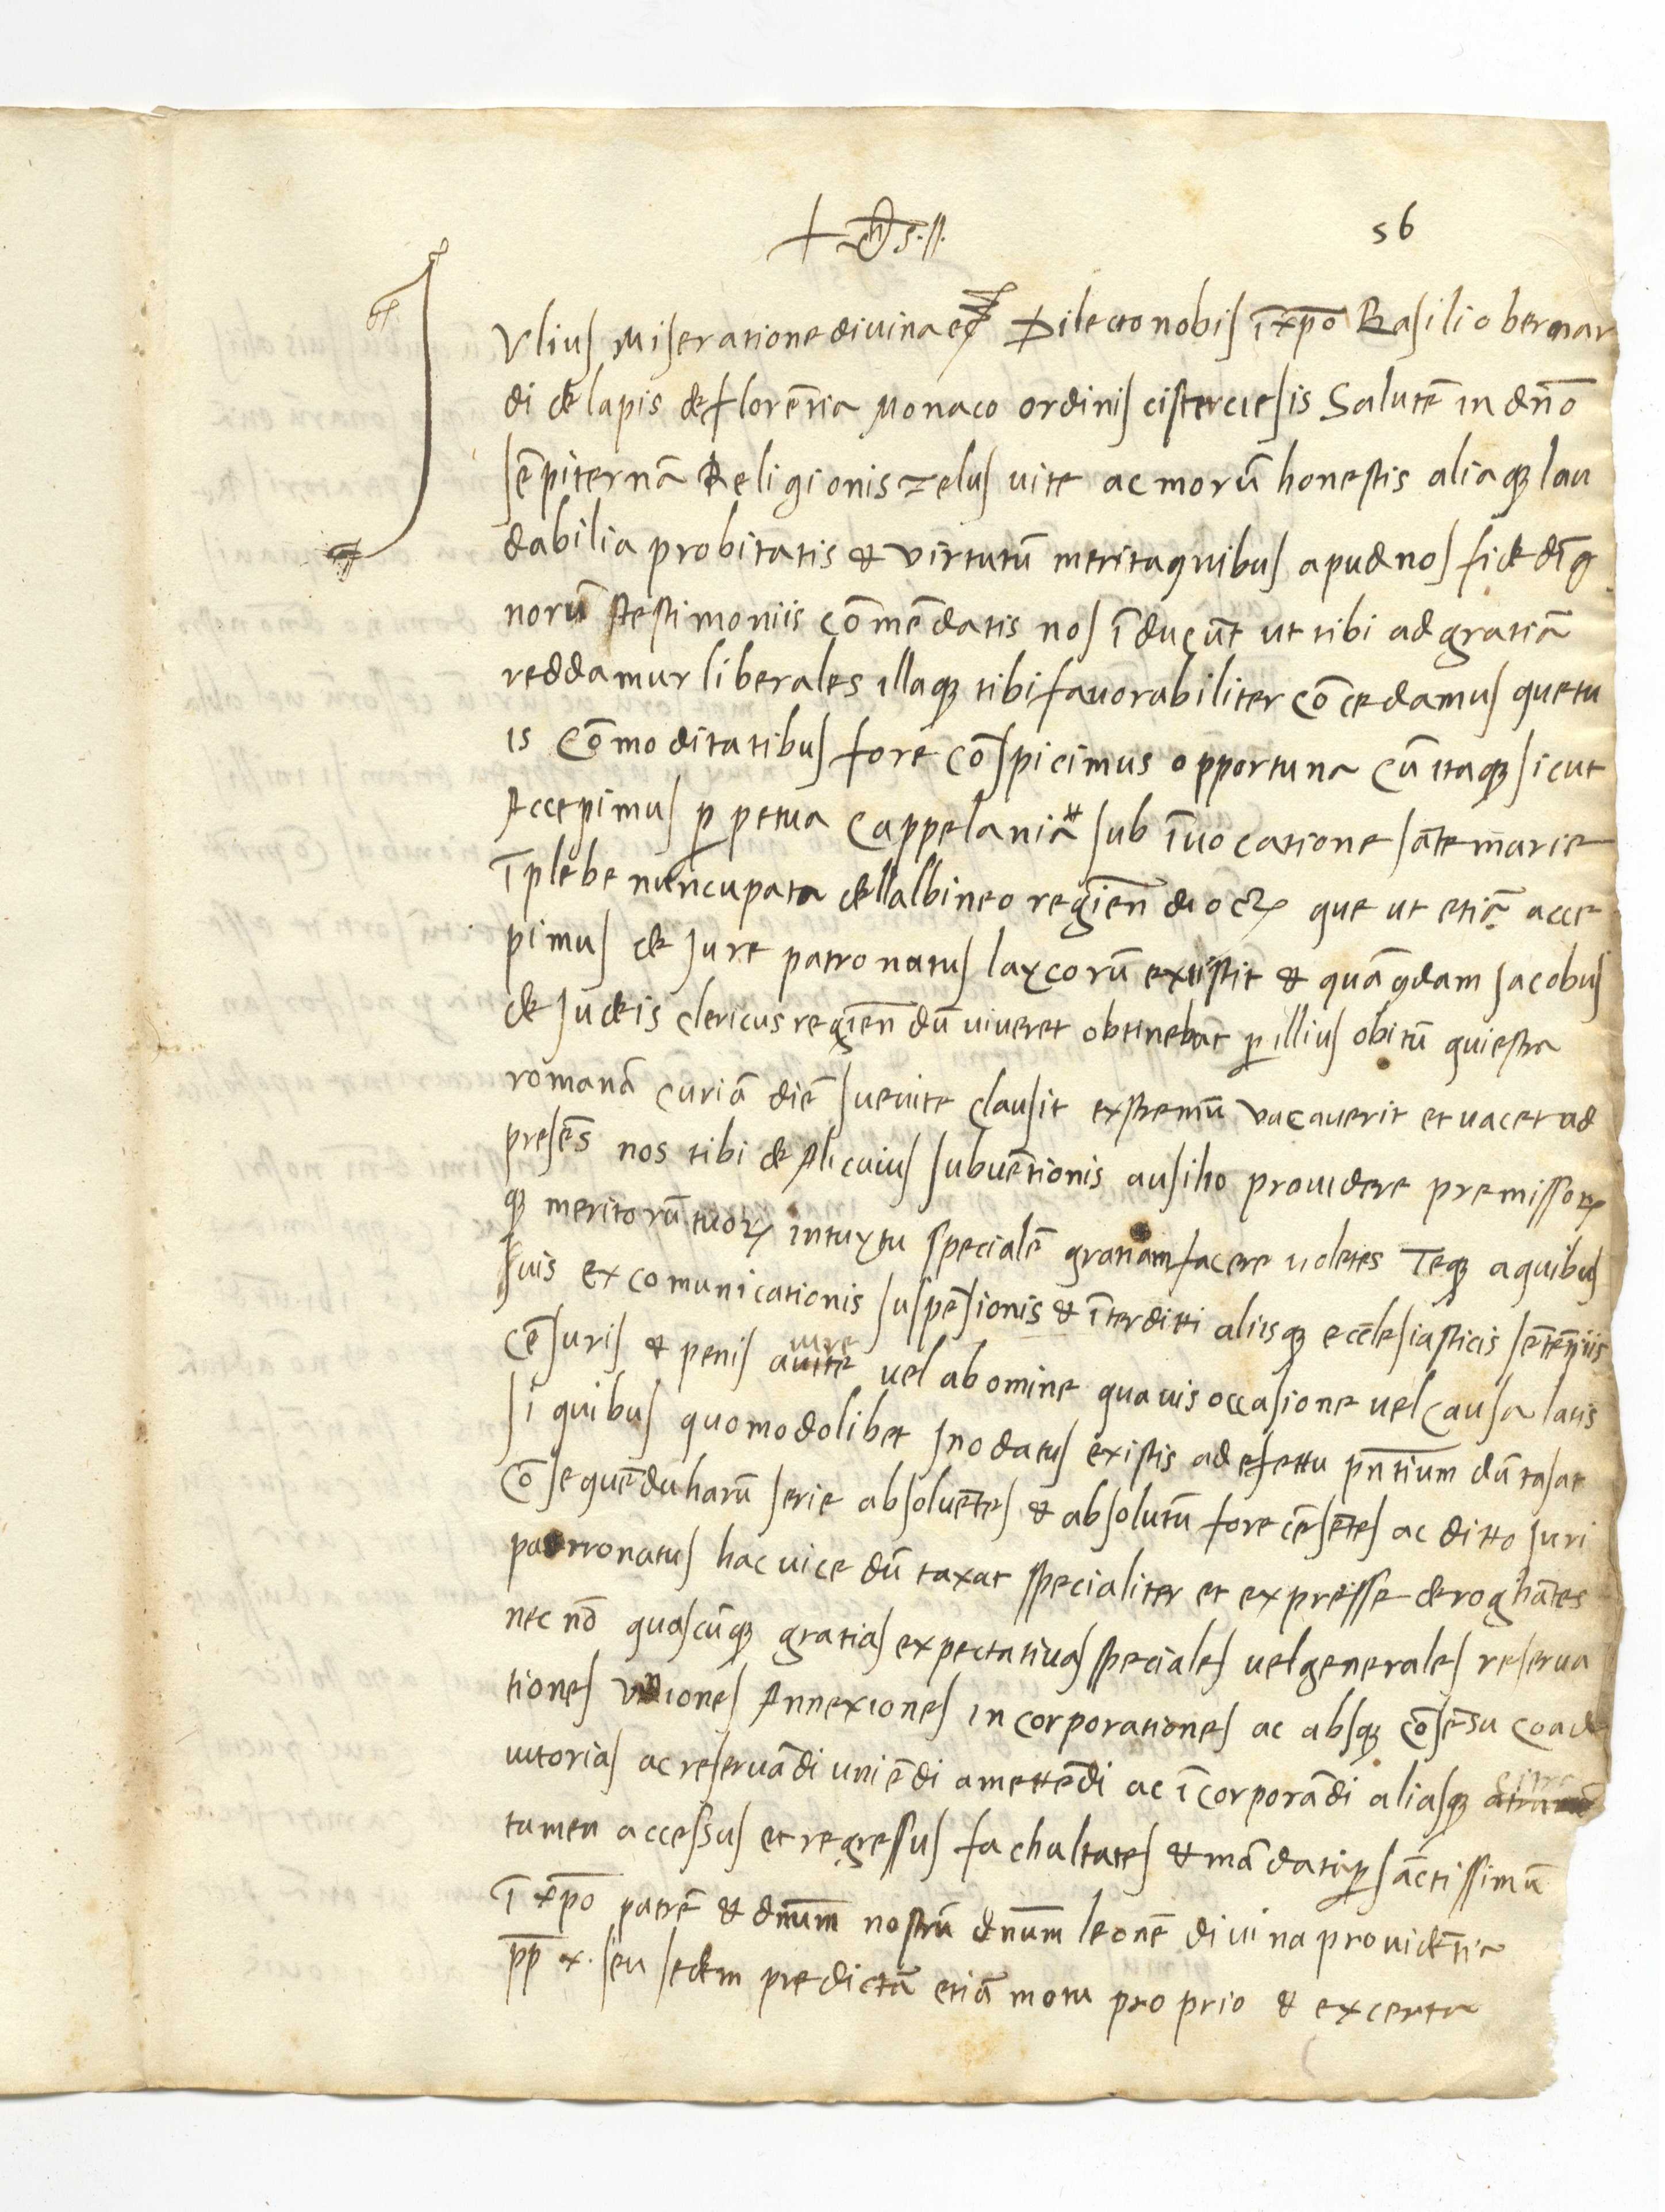 56
J
Vlius Miseratione divina etc Dilecto nobis ī xp̄o Basilio bernar
di de lapis de florētia Monaco ordinis cisterciēsis Salutē in dn̄o
sēpiternā Religionis zelus vite ac morū honestis aliaqꝫ lau
dabilia probitatis & virtutū merita quibus apud nos fide dīg
norū testimoniis cōmēdatis nos īducūt ut tibi ad gratiā
reddamur liberales illaqꝫ tibi favorabiliter cōcedamus que tu
is cōmoditatibus fore cōspicimus opportuna cū itaqꝫ sicut
Accepimus ꝑpetua cappelania sub īvocatione sāte marie
ī plebe nuncupata dellalbineo regien̄ dioc̄ que ut etiā acce
pimus de Jure patronatus laycorū existit & quā qdam Jacobus
de Judeis clericus regien̄ dū viveret obtinebat ꝑ illius obitū qui estra
romanā curiā diē sue vite clausit extremū vacaverit et vacet ad
presēs nos tibi de Alicuius subvētionis ausilio providere premissoꝝ
qꝫ meritorū tuoꝝ intuytu specialē gratiam facere volētes Teqꝫ a quibus
suis excomunicationis suspēsionis & īterditti aliisqꝫ ecclesiasticis sētētiis
cēsuris & penis a iure vel ab omine quavis occasione vel causa latis
si quibus quomodolibet Jnodatus existis ad efettu pn̄tium dū tasat
cōsequēdu harū serie absolvētes & absolutū fore cēsētes ac ditto Juri
patronatus hac vice dū taxat specialiter et expresse deroghātes
nec nō quascūqꝫ gratias expectativas speciales vel generales reserva
tiones Vniones Annexiones incorporationes ac absqꝫ cōsēsu coad
iutorias ac reservādi uniēdi amettēdi ac īcorporādi aliasqꝫ citra
tamen accessus et regressus fachultates & mādati ꝑ sāctissimū
ī xp̄o patrē & dn̄um nostrū dn̄um leonē divina providētia
pp̄ x. seu sedem predictā etiā motu proprio & ex certa